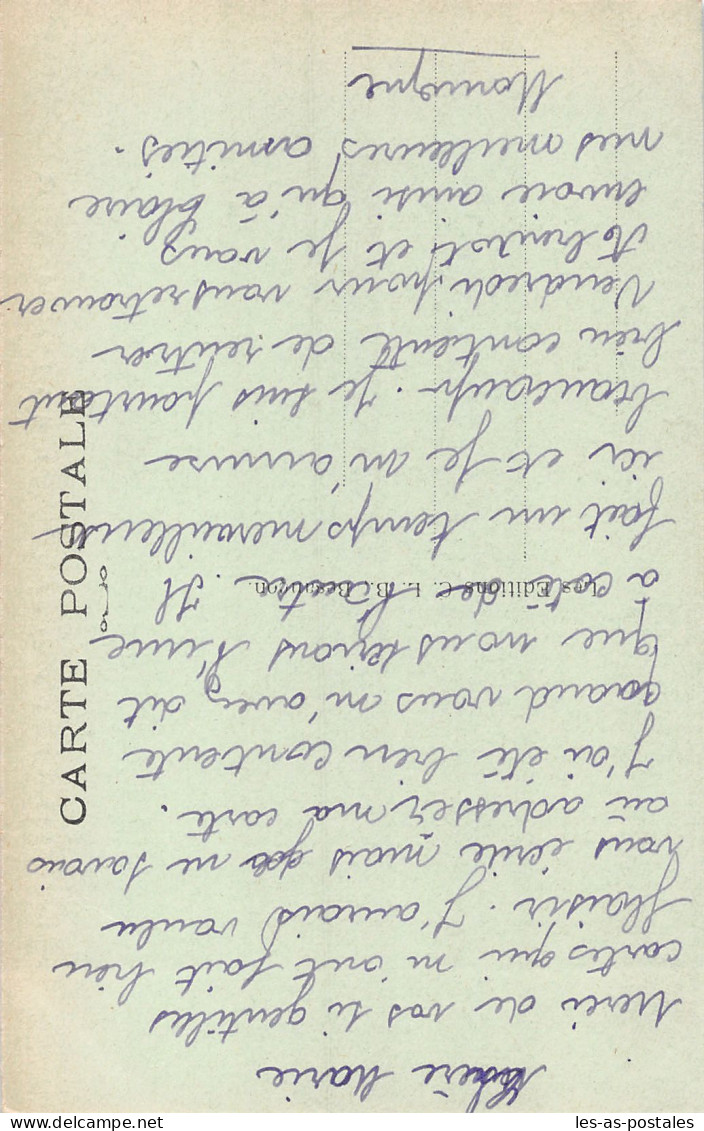 Chère Marie
Merci de vos si gentilles
cartes qui m'ont fait bien
plaisir. J'aurais voulu
vous écrire mais je ne savais
où adresser ma carte.
J'ai été bien contente
quand vous m'avez dit
que nous serions l'une
à côté de l'autre. Il
fait un temps merveilleux
ici et je m'amuse
beaucoup. Je suis pourtant
bien contente de rentrer
Vendredi pour vous retrouver
et je vous
envoie ainsi qu'à Claire
mes meilleures amitiés.
Monique
CARTE POSTALE
Les Editions C. L. B. Besançon.
les-as-postales
delcampe.net